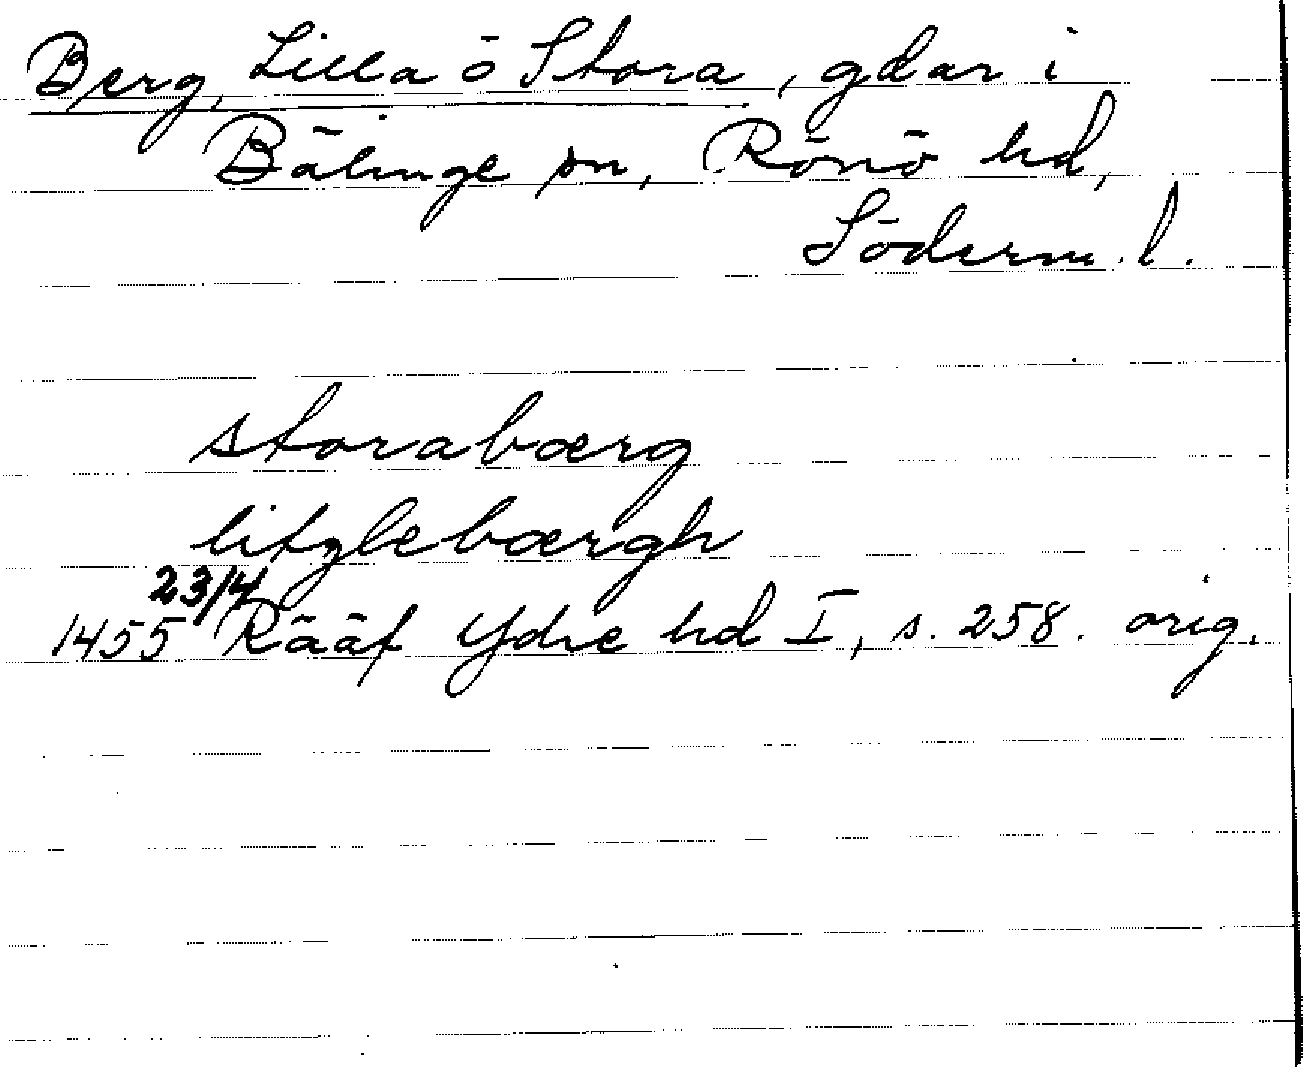 Berg, Lilla o Stora, gdar i
Bälinge sn, Rönö hd,
Söderm. l.
storabærg
litzlebærgh
23/4
1455 Rääf Ydre hd I, s. 258. orig.